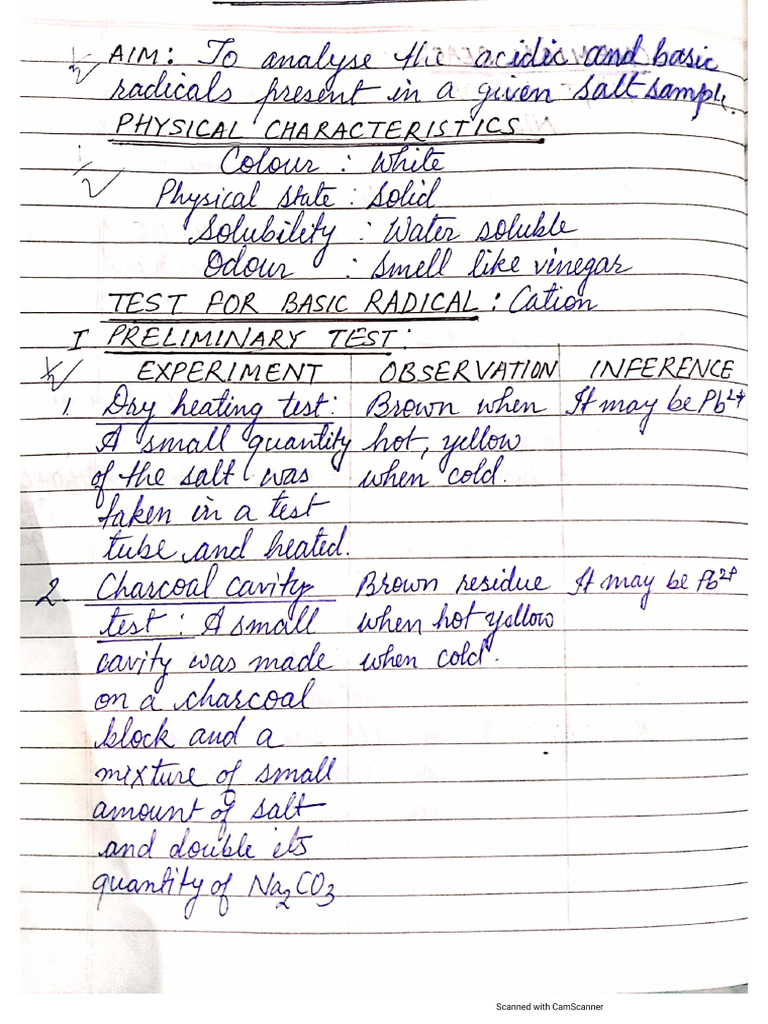 AIM: To analyse the acidic and basic
radicals present in a given salt sample.
PHYSICAL CHARACTERISTICS
Colour : White
Physical state : Solid
Solubility : Water soluble
Odour : Smell like vinegar
TEST FOR BASIC RADICAL : Cation
I PRELIMINARY TEST:
EXPERIMENT OBSERVATION INFERENCE
1. Dry heating test: Brown when It may be Pb²⁺
A small quantity hot, yellow
of the salt was when cold.
taken in a test
tube and heated.
2. Charcoal cavity Brown residue It may be Pb²⁺
test : A small when hot yellow
cavity was made when cold.
on a charcoal
block and a
mixture of small
amount of salt
and double its
quantity of Na₂CO₃
Scanned with CamScanner